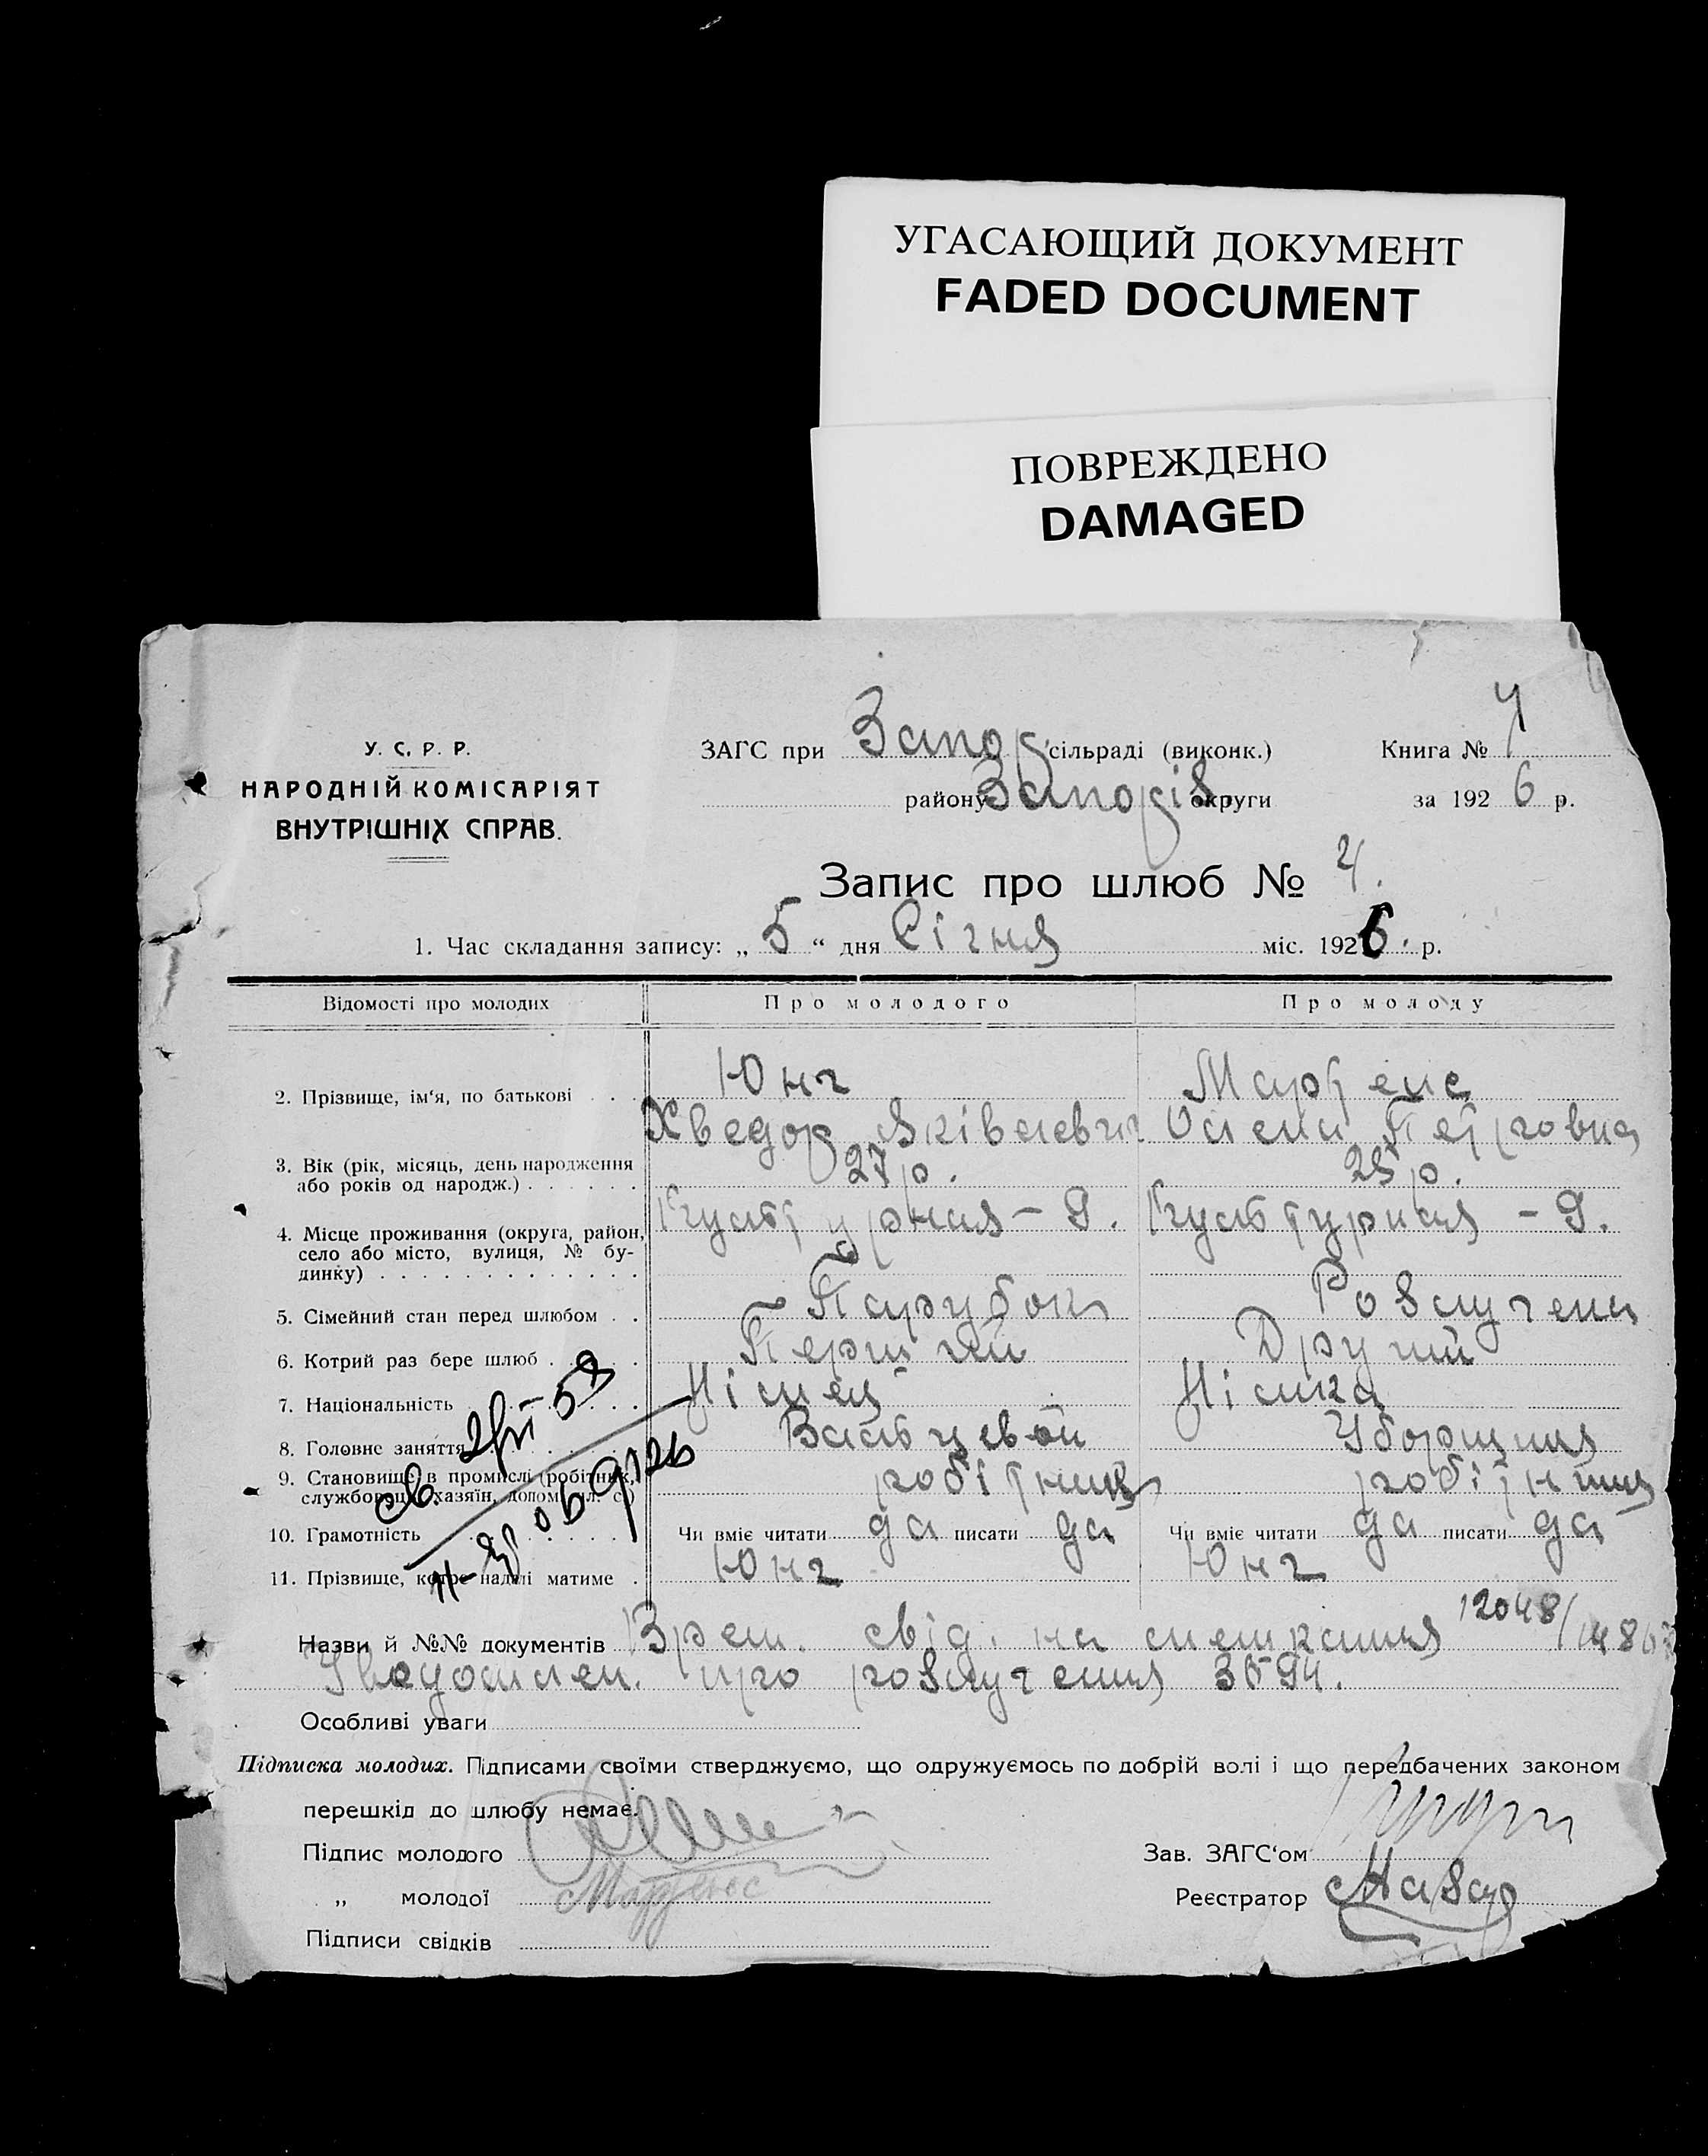 УГАСАЮЩИЙ ДОКУМЕНТ
FADED DOCUMENT
ПОВРЕЖДЕНО
DAMAGED
У. С. Р. Р.
НАРОДНІЙ КОМІСАРІЯТ
ВНУТРІШНІХ СПРАВ.
ЗАГС при Запор. сільраді (виконк.) Книга №
району Запоріз. округи за 1926 р.
Запис про шлюб № 4.
1. Час складання запису: „ 5 “ дня Січня міс. 1926. р.
Відомості про молодих Про молодого Про молоду
2. Прізвище, ім‘я, по батькові . . . Юнг Мартенс
Хведор Яківлевич Олена Петровна
3. Вік (рік, місяць, день народження або років од народж.) . . . . . . 27 р. 25 р.
4. Місце проживання (округа, район, село або місто, вулиця, № будинку) . . . . . . . . . . . . . Культурная – 9. Культурная – 9.
5. Сімейний стан перед шлюбом . . Парубок Розлучена
6. Котрий раз бере шлюб . . . . Перший Другий
7. Національність . . . . . . . . Німец Німка
8. Головне заняття . . . . . . . Вальцевой Уборщиця
9. Становище в промислі (робітник, службовець, хазяїн, допом. чл. с.) робітник робітниця
10. Грамотність . . . . . . Чи вміє читати да писати да Чи вміє читати да писати да
11. Прізвище, котре надалі матиме . Юнг Юнг
Назви й №№ документів Врем. свід. на мешкання 12048/
Уведомлен. про розлучення 3694.
Особливі уваги
Підписка молодих. Підписами своїми стверджуємо, що одружуємось по добрій волі і що передбачених законом
перешкід до шлюбу немає.
Підпис молодого
Зав. ЗАГС‘ом
„ молодої Мартенс
Реєстратор
Підписи свідків